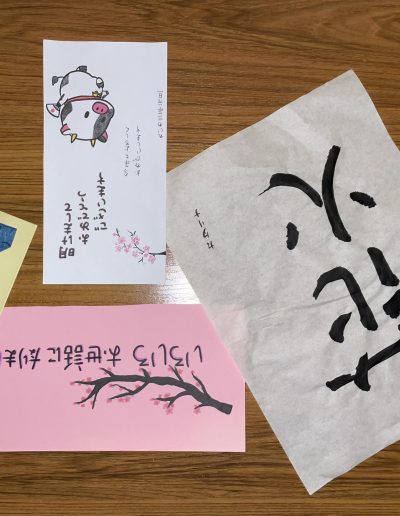 明けまして
おめでとう
ございます
今年もよろしく
おねがいします
れいわ三年元日
いろいろお世話になりま
花火